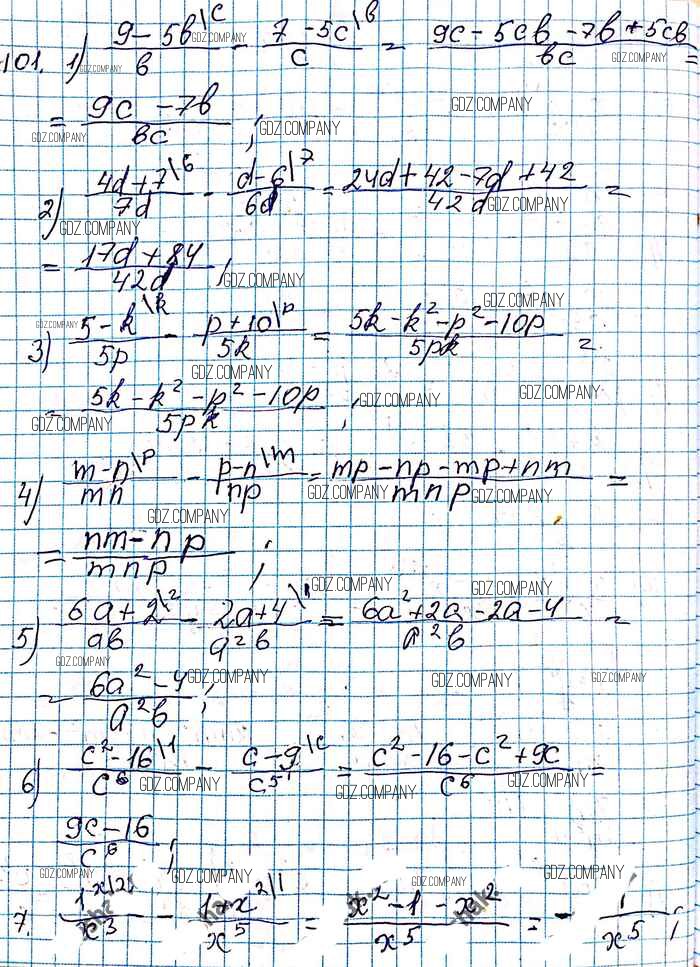 101. 1) (9 - 5b \c)/b - (7 - 5c \b)/c = (9c - 5cb - 7b + 5cb)/bc =
= (9c - 7b)/bc ;
2) (4d + 7 \6)/7d - (d - 6 \7)/6d = (24d + 42 - 7d + 42)/42d =
= (17d + 84)/42d ;
3) (5 - k \k)/5p - (p + 10 \p)/5k = (5k - k² - p² - 10p)/5pk =
= (5k - k² - p² - 10p)/5pk ;
4) (m - n \p)/mn - (p - n \m)/np = (mp - np - mp + nm)/mnp =
= (nm - np)/mnp ;
5) (6a + 2 \a)/ab - (2a + 4 \1)/a²b = (6a² + 2a - 2a - 4)/a²b =
= (6a² - 4)/a²b ;
6) (c² - 16 \1)/c⁶ - (c - 9 \c)/c⁵ = (c² - 16 - c² + 9c)/c⁶ =
(9c - 16)/c⁶ ;
7. 1/x³ - (1 + x² \1)/x⁵ = (x² - 1 - x²)/x⁵ = - 1/x⁵ ;
GDZ.COMPANY